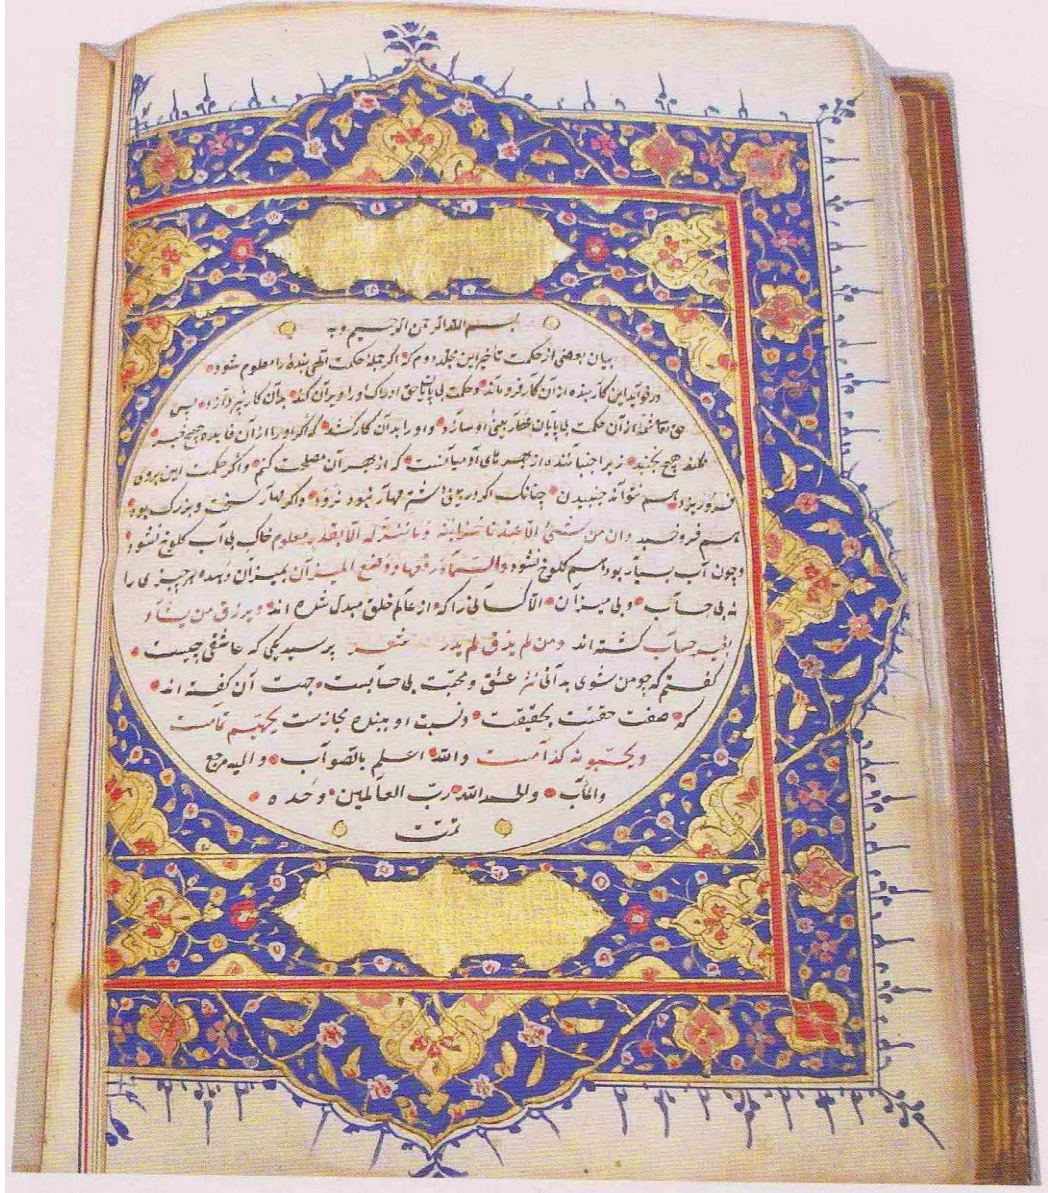 بسم الله الرحمن الرحیم وبه
بیان بعضی از حکمت تأخیر این مجلد دوم که اگر جمله حکمت الهی بنده را معلوم شود
در فواید این کار بنده از آن کار فرو ماند وحکمت بی پایان حق ادراک او را ویران کند بدان کار نپردازد پس
حق تعالی از آن حکمت بی پایان مهار بینئ او سازد واو را بدان کار کشد که اگر او را از آن فایده هیچ خبر
نکند هیچ نجنبد زیرا جنباننده از بهر های آدمیانست که از بهر آن مصلحت کنم واگر حکمت این بروی
فرو ریزد هم نتواند جنبیدن چنانک اگر در بینی اشتر مهار نبود نرود واگر مهار سخت وبزرگ بود
هم فرو خسبد وان من شیئ الا عندنا خزائنه وما ننزله الا بقدر معلوم خاک بی آب کلوخ نشود
وچون آب بسیار بود هم کلوخ نشود والسمآء رفعها ووضع المیزان بمیزان دهد هر چیزی را
نه بی حساب وبی میزان الا کسانی را که از عالم خلق مبدل شده اند ویرزق من یشآء
بغیر حساب کشته اند ومن لم یذق لم یدر پرسید یکی که عاشقی چیست
کفتم که چو من شوی بدانی عشق ومحبت بی حسابست جهت آن کفته اند
که صفت حقست بحقیقت ونسبت او ببنده مجازست یحبهم تمامست
ویحبونه کدامست والله اعلم بالصواب والیه مرجع
والمآب والحمد الله رب العالمین وحده
تمت